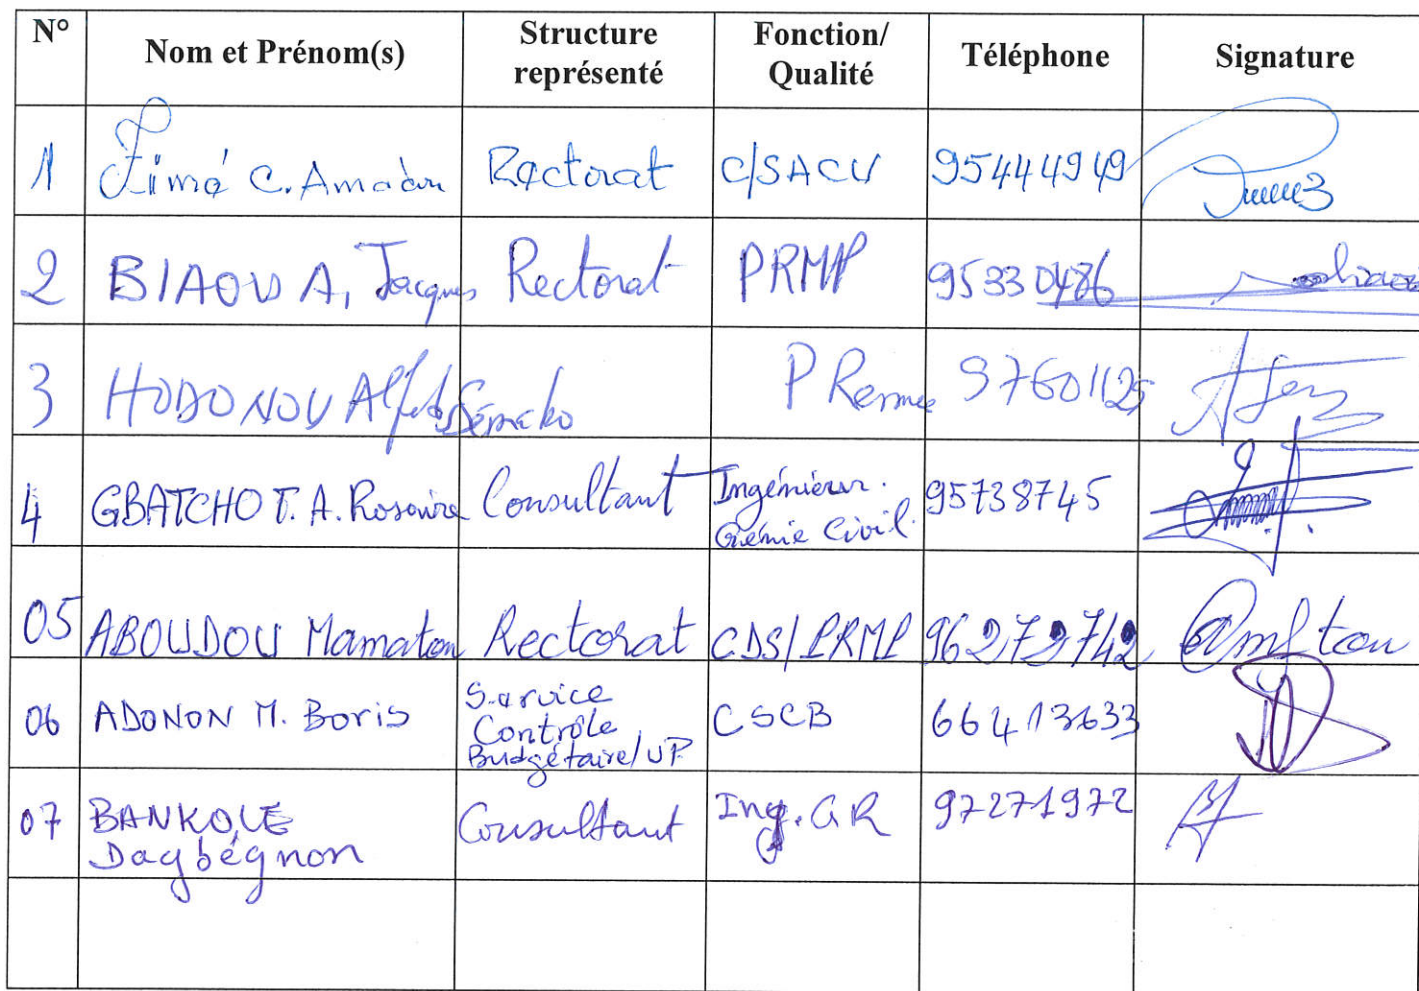 N° Nom et Prénom(s) Structure représenté Fonction/ Qualité Téléphone Signature
1 Zimé C. Amadou Rectorat C/SACU 95444949
2 BIAOU A, Jacques Rectorat PRMP 95330486
3 HODONOU Sémako P Remue 97601125
4 GBATCHO T. A. Rosaire Consultant Ingénieur. Génie Civil. 95738745
05 ABOUDOU Mamatou Rectorat CDS/PRMP 96272742
06 ADONON M. Boris Service Contrôle Budgétaire/UP CSCB 66413633
07 BANKOLE Dagbégnon Consultant Ing. GR 97271972